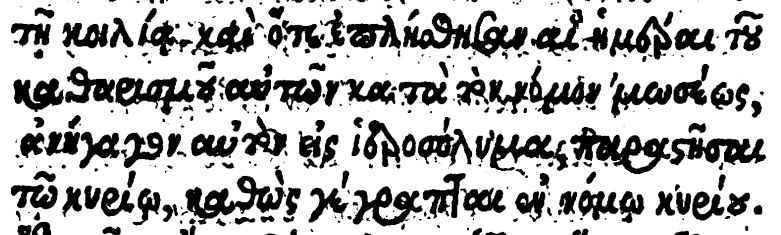 τῇ κοιλίᾳ. καὶ ὅτε ἐπλήσθησαν αἱ ἡμέραι τοῦ
καθαρισμοῦ αὐτῶν κατὰ τὸν νόμον μωσέως,
ἀνήγαγον αὐτὸν εἰς ἱεροσόλυμα, παραστῆσαι
τῷ κυρίῳ, καθὼς γέγραπται ἐν νόμῳ κυρίου.